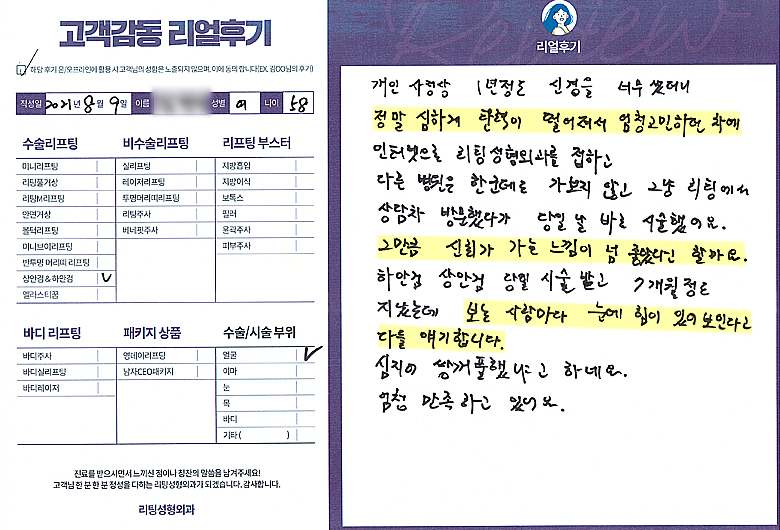 고객감동 리얼후기
해당 후기 온/오프라인에 활용 시 고객님의 성함은 노출되지 않으며, 이에 동의 합니다(EX. 김OO님의 후기)
작성일 2021년 8월 9일 이름 성별 여 나이 58
수술리프팅
미니리프팅
리팅풀거상
리팅M리프팅
안면거상
볼턱리프팅
미니브이리프팅
반투명 머리띠 리프팅
상안검 & 하안검 ✓
엘라스티꿈
비수술리프팅
실리프팅
레이저리프팅
투명머리띠리프팅
리팅주사
비네핏주사
리프팅 부스터
지방흡입
지방이식
보톡스
필러
윤곽주사
피부주사
바디 리프팅
바디주사
바디실리프팅
바디레이저
패키지 상품
영데이리프팅
남자CEO패키지
수술/시술 부위
얼굴 ✓
이마
눈
목
바디
기타 ( )
진료를 받으시면서 느끼신 점이나 칭찬의 말씀을 남겨주세요!
고객님 한 분 한 분 정성을 다하는 리팅성형외과가 되겠습니다. 감사합니다.
리팅성형외과
리얼후기
개인 사정상 1년정도 신경을 너무 썼더니
정말 심하게 탄력이 떨어져서 엄청고민하던 차에
인터넷으로 리팅성형외과를 접하고
다른 병원은 한군데도 가보지 않고 그냥 리팅에서
상담차 방문했다가 당일 날 바로 시술했어요.
그만큼 신뢰가 가는 느낌이 넘 좋았다고 할까요.
하안검 상안검 당일 시술 받고 7개월정도
지났는데 보는 사람마다 눈에 힘이 있어보인다고
다들 얘기합니다.
심지어 쌍꺼풀했냐고 하네요.
엄청 만족하고 있어요.